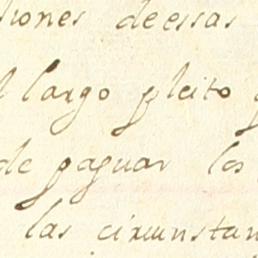 siones de essas
l largo pleito
de paguar los
las circunstan